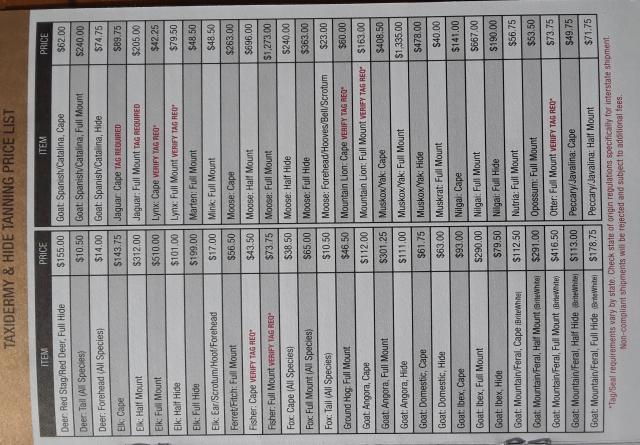 TAXIDERMY & HIDE TANNING PRICE LIST
ITEM PRICE ITEM PRICE
Deer: Red Stag/Red Deer, Full Hide $155.00 Goat: Spanish/Catalina, Cape $62.00
Deer: Tail (All Species) $10.50 Goat: Spanish/Catalina, Full Mount $240.00
Deer: Forehead (All Species) $14.00 Goat: Spanish/Catalina, Hide $74.75
Elk: Cape $143.75 Jaguar: Cape TAG REQUIRED $89.75
Elk: Half Mount $312.00 Jaguar: Full Mount TAG REQUIRED $205.00
Elk: Full Mount $510.00 Lynx: Cape VERIFY TAG REQ* $42.25
Elk: Half Hide $101.00 Lynx: Full Mount VERIFY TAG REQ* $79.50
Elk: Full Hide $199.00 Marten: Full Mount $48.50
Elk: Ear/Scrotum/Hoof/Forehead $17.00 Mink: Full Mount $48.50
Ferret/Fitch: Full Mount $56.50 Moose: Cape $263.00
Fisher: Cape VERIFY TAG REQ* $43.50 Moose: Half Mount $696.00
Fisher: Full Mount VERIFY TAG REQ* $73.75 Moose: Full Mount $1,273.00
Fox: Cape (All Species) $38.50 Moose: Half Hide $240.00
Fox: Full Mount (All Species) $65.00 Moose: Full Hide $363.00
Fox: Tail (All Species) $10.50 Moose: Forehead/Hooves/Bell/Scrotum $23.00
Ground Hog: Full Mount $46.50 Mountain Lion: Cape VERIFY TAG REQ* $60.00
Goat: Angora, Cape $112.00 Mountain Lion: Full Mount VERIFY TAG REQ* $163.00
Goat: Angora, Full Mount $301.25 Muskox/Yak: Cape $408.50
Goat: Angora, Hide $111.00 Muskox/Yak: Full Mount $1,335.00
Goat: Domestic, Cape $61.75 Muskox/Yak: Hide $478.00
Goat: Domestic, Hide $63.00 Muskrat: Full Mount $40.00
Goat: Ibex, Cape $93.00 Nilgai: Cape $141.00
Goat: Ibex, Full Mount $290.00 Nilgai: Full Mount $667.00
Goat: Ibex, Hide $79.50 Nilgai: Full Hide $190.00
Goat: Mountain/Feral, Cape (BriteWhite) $112.50 Nutria: Full Mount $56.75
Goat: Mountain/Feral, Half Mount (BriteWhite) $291.00 Opossum: Full Mount $53.50
Goat: Mountain/Feral, Full Mount (BriteWhite) $416.50 Otter: Full Mount VERIFY TAG REQ* $73.75
Goat: Mountain/Feral, Half Hide (BriteWhite) $113.00 Peccary/Javalina: Cape $49.75
Goat: Mountain/Feral, Full Hide (BriteWhite) $178.75 Peccary/Javalina: Half Mount $71.75
*Tag/Seal requirements vary by state. Check state of origin regulations specifically for interstate shipment.
Non-compliant shipments will be rejected and subject to additional fees.